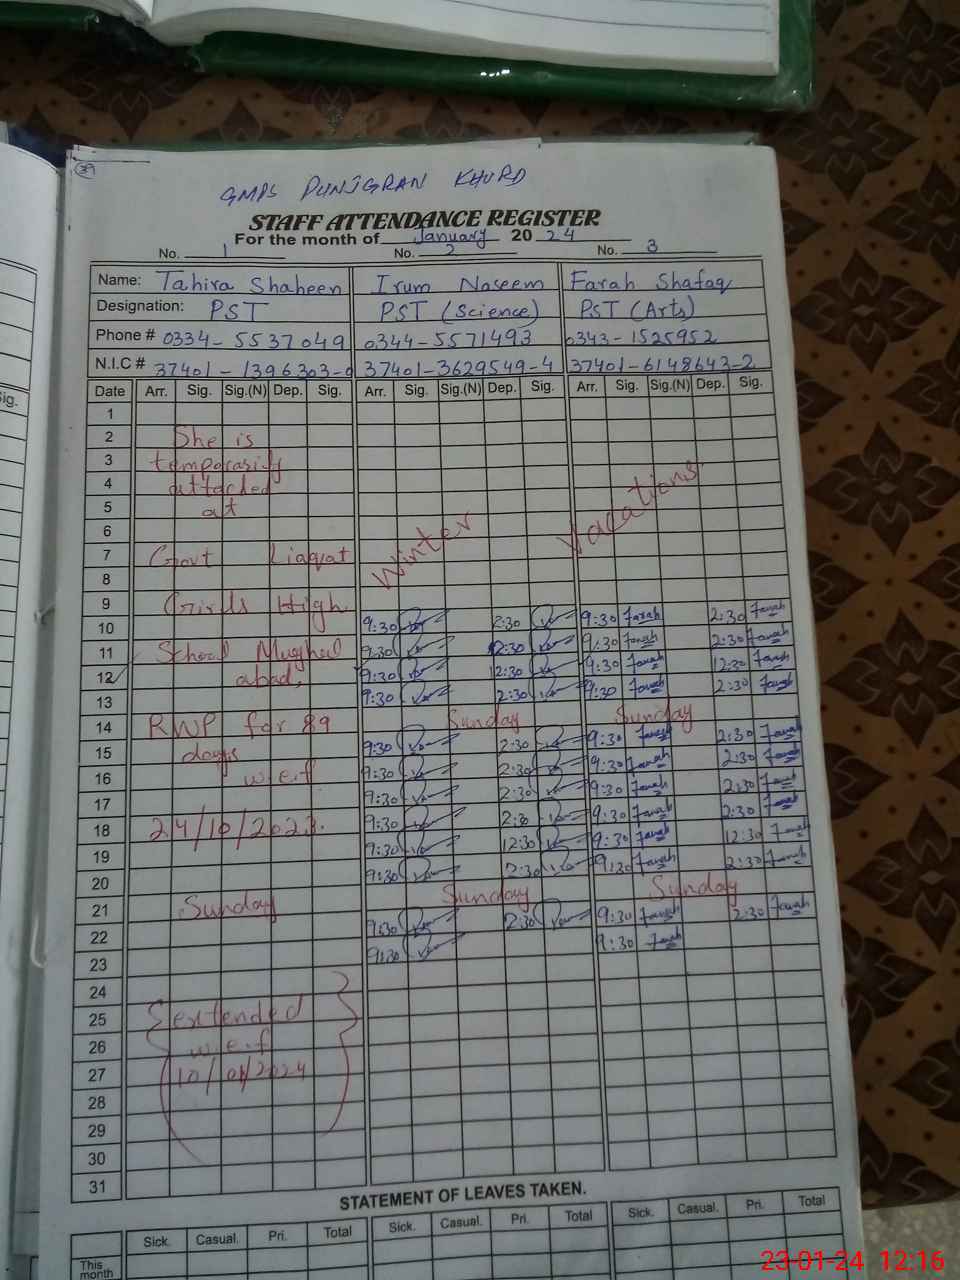 39
GMPS PUNJGRAN KHURD
STAFF ATTENDANCE REGISTER
For the month of January 20 24
No. 1 No. 2 No. 3
Name: Tahira Shaheen Irum Naseem Farah Shafaq
Designation: PST PST (Science) PST (Arts)
Phone # 0334-5537049 0344-5571493 0343-1525952
N.I.C # 37401-1396303-0 37401-3629549-4 37401-6148643-2
Date Arr. Sig. Sig.(N) Dep. Sig. Arr. Sig. Sig.(N) Dep. Sig. Arr. Sig. Sig.(N) Dep. Sig.
1
2 She is
3 temporarily
4 attached
5 at
6
7 Govt Liaqat Winter Vacations
8
9 Girls High
10 9:30 2:30 9:30 Farah 2:30 Farah
11 School Mughal 9:30 12:30 9:30 Farah 2:30 Farah
12 abad, 9:30 12:30 9:30 Farah 12:30 Farah
13 9:30 2:30 9:30 Farah 2:30 Farah
14 RWP for 89 Sunday Sunday
15 days 9:30 2:30 9:30 Farah 2:30 Farah
16 w.e.f 9:30 2:30 9:30 Farah 2:30 Farah
17 9:30 2:30 9:30 Farah 2:30 Farah
18 24/10/2023. 9:30 2:30 9:30 Farah 2:30 Farah
19 9:30 12:30 9:30 Farah 12:30 Farah
20 9:30 2:30 9:30 Farah 2:30 Farah
21 Sunday Sunday Sunday
22 9:30 2:30 9:30 Farah 2:30 Farah
23 9:30 9:30 Farah
24
25 extended
26 w.e.f
27 10/01/2024
28
29
30
31
STATEMENT OF LEAVES TAKEN.
Sick. Casual. Pri. Total Sick. Casual. Pri. Total Sick. Casual. Pri. Total
This
month
23-01-24 12:16